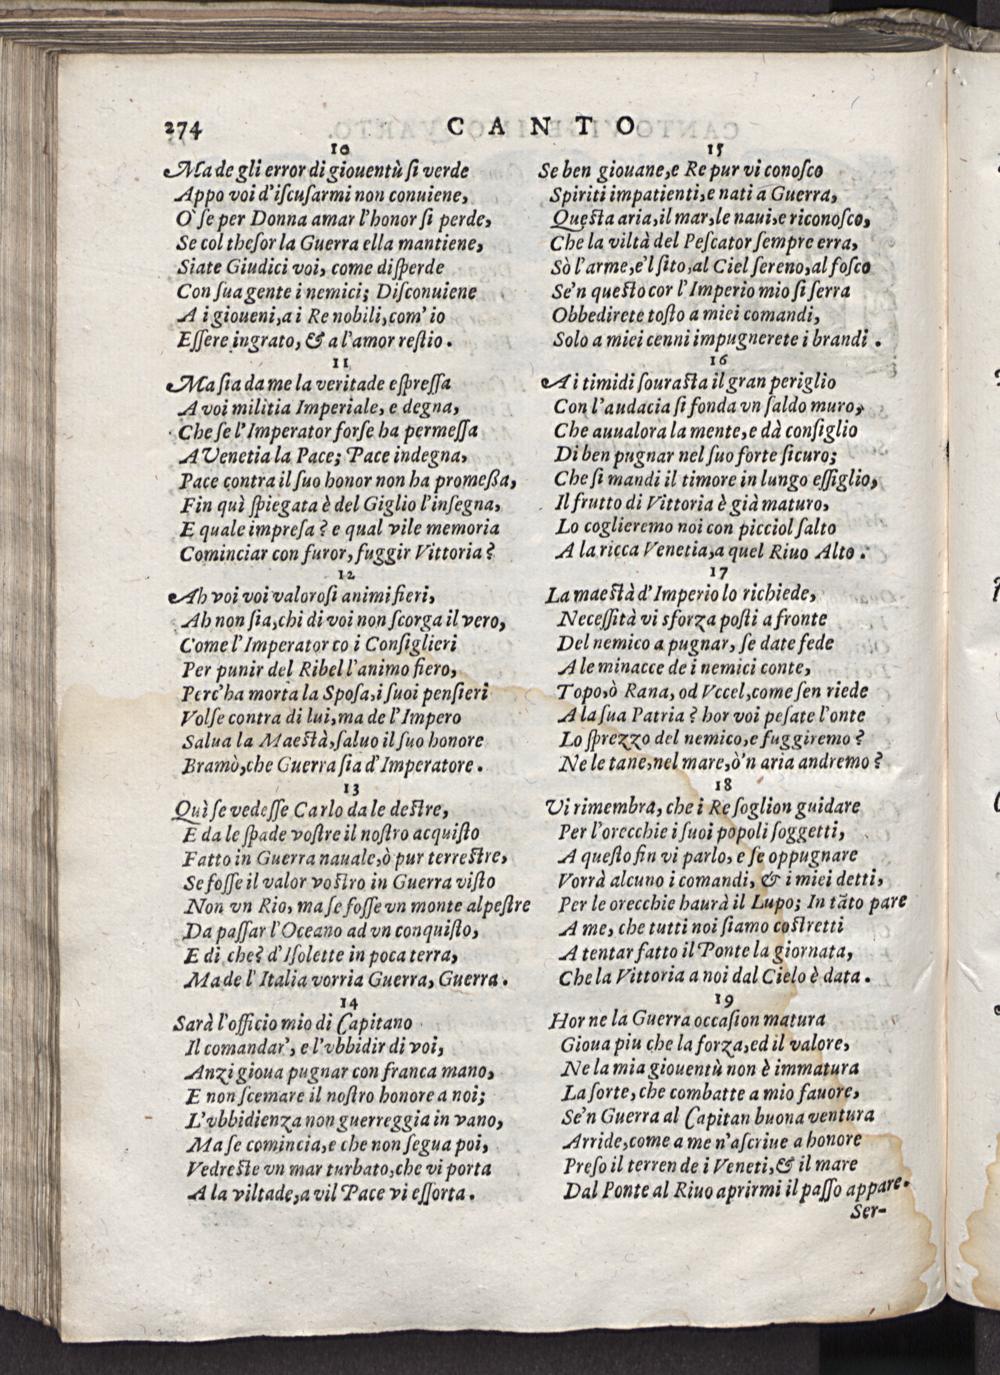 274
CANTO
10
Ma de gli error di giouentù ſi verde
Appo voi d'iſcuſarmi non conuiene,
O' ſe per Donna amar l'honor ſi perde,
Se col theſor la Guerra ella mantiene,
Siate Giudici voi, come diſperde
Con ſua gente i nemici; Diſconuiene
A i gioueni, a i Re nobili, com' io
Eſſere ingrato, & a l'amor reſtio.
11
Ma ſia da me la veritade eſpreſſa
A voi militia Imperiale, e degna,
Che ſe l'Imperator forſe ha permeſſa
A Venetia la Pace; Pace indegna,
Pace contra il ſuo honor non ha promeßa,
Fin quì ſpiegata è del Giglio l'inſegna,
E quale impreſa? e qual vile memoria
Cominciar con furor, fuggir Vittoria?
12
Ah voi voi valoroſi animi fieri,
Ah non ſia, chi di voi non ſcorga il vero,
Come l'Imperator co i Conſiglieri
Per punir del Ribel l'animo fiero,
Perc'ha morta la Spoſa, i ſuoi penſieri
Volſe contra di lui, ma de l'Impero
Salua la Maeſtà, ſaluo il ſuo honore
Bramò, che Guerra ſia d'Imperatore.
13
Quì ſe vedeſſe Carlo da le deſtre,
E da le ſpade voſtre il noſtro acquiſto
Fatto in Guerra nauale, ò pur terreſtre,
Se foſſe il valor voſtro in Guerra viſto
Non vn Rio, ma ſe foſſe vn monte alpeſtre
Da paſſar l'Oceano ad vn conquiſto,
E di che? d'Iſolette in poca terra,
Ma de l'Italia vorria Guerra, Guerra.
14
Sarà l'officio mio di Capitano
Il comandar', e l'vbbidir di voi,
Anzi gioua pugnar con franca mano,
E non ſcemare il noſtro honore a noi;
L'vbbidienza non guerreggia in vano,
Ma ſe comincia, e che non ſegua poi,
Vedreſte vn mar turbato, che vi porta
A la viltade, a vil Pace vi eſſorta.
15
Se ben giouane, e Re pur vi conoſco
Spiriti impatienti, e nati a Guerra,
Queſta aria, il mar, le naui, e riconoſco,
Che la viltà del Peſcator ſempre erra,
Sò l'arme, e'l ſito, al Ciel ſereno, al foſco
Se'n queſto cor l'Imperio mio ſi ſerra
Obbedirete toſto a miei comandi,
Solo a miei cenni impugnerete i brandi.
16
A i timidi ſouraſta il gran periglio
Con l'audacia ſi fonda vn ſaldo muro,
Che auualora la mente, e dà conſiglio
Di ben pugnar nel ſuo forte ſicuro;
Che ſi mandi il timore in lungo eſſiglio,
Il frutto di Vittoria è già maturo,
Lo coglieremo noi con picciol ſalto
A la ricca Venetia, a quel Riuo Alto.
17
La maeſtà d'Imperio lo richiede,
Neceſſità vi sforza poſti a fronte
Del nemico a pugnar, ſe date fede
A le minacce de i nemici conte,
Topo, ò Rana, od Vccel, come ſen riede
A la ſua Patria? hor voi peſate l'onte
Lo ſprezzo del nemico, e fuggiremo?
Ne le tane, nel mare, ò'n aria andremo?
18
Vi rimembra, che i Re ſoglion guidare
Per l'orecchie i ſuoi popoli ſoggetti,
A queſto fin vi parlo, e ſe oppugnare
Vorrà alcuno i comandi, & i miei detti,
Per le orecchie haurà il Lupo; In tãto pare
A me, che tutti noi ſiamo coſtretti
A tentar fatto il Ponte la giornata,
Che la Vittoria a noi dal Cielo è data.
19
Hor ne la Guerra occaſion matura
Gioua piu che la forza, ed il valore,
Ne la mia giouentù non è immatura
La ſorte, che combatte a mio fauore,
Se'n Guerra al Capitan buona ventura
Arride, come a me n'aſcriue a honore
Preſo il terren de i Veneti, & il mare
Dal Ponte al Riuo aprirmi il paſſo appare.
Ser-